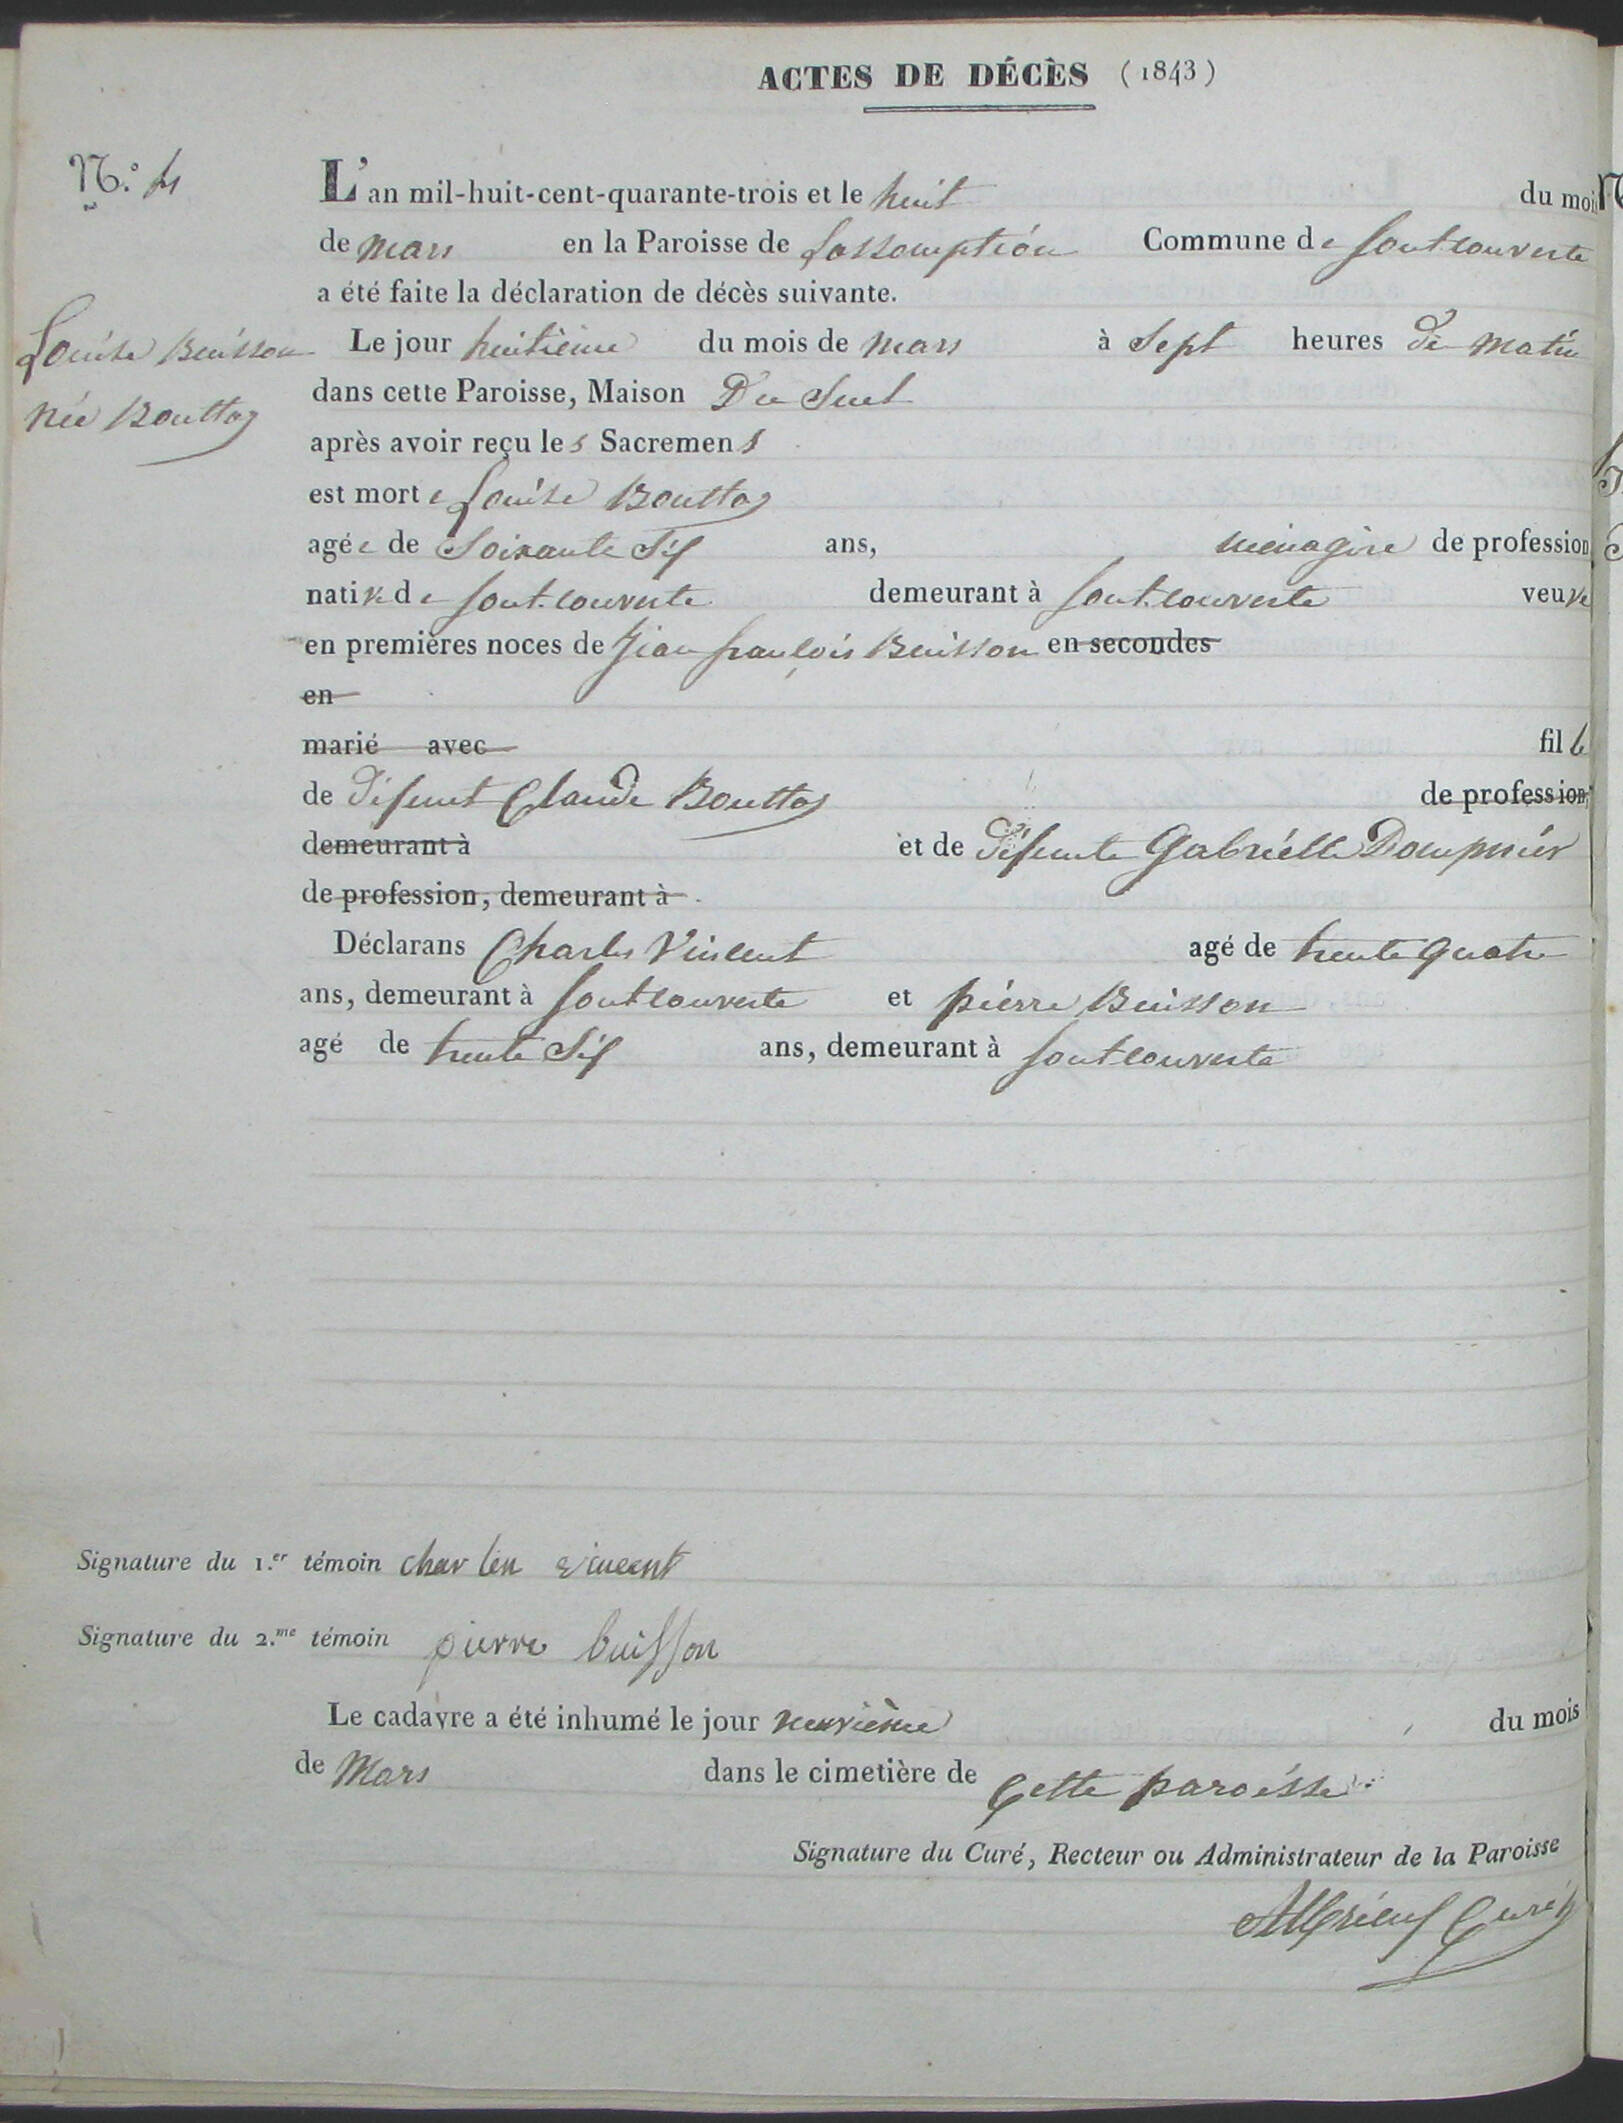 ACTES DE DÉCÈS (1843)
N.° 4
L'an mil-huit-cent-quarante-trois et le huit du mois
de mars en la Paroisse de Lassomption Commune de fontcouverte
a été faite la déclaration de décès suivante.
Louise Buisson
née Bouttaz
Le jour huitième du mois de mars à Sept heures du matin
dans cette Paroisse, Maison Du Suel
après avoir reçu les Sacremens
est morte Louise Bouttaz
agée de Soixante Six ans, ménagère de profession
native de fontcouverte demeurant à fontcouverte veuve
en premières noces de Jean françois Buisson en secondes
en
marié avec fille
de défunt Claude Bouttaz de profession,
demeurant à et de défunte Gabrielle Dompnier
de profession, demeurant à
Déclarans Charles Vincent agé de trente quatre
ans, demeurant à fontcouverte et pierre Buisson
agé de trente Six ans, demeurant à fontcouverte
Signature du 1.er témoin charles vincent
Signature du 2.me témoin pierre buisson
Le cadavre a été inhumé le jour neuvième du mois
de Mars dans le cimetière de Cette paroisse
Signature du Curé, Recteur ou Administrateur de la Paroisse
Curé